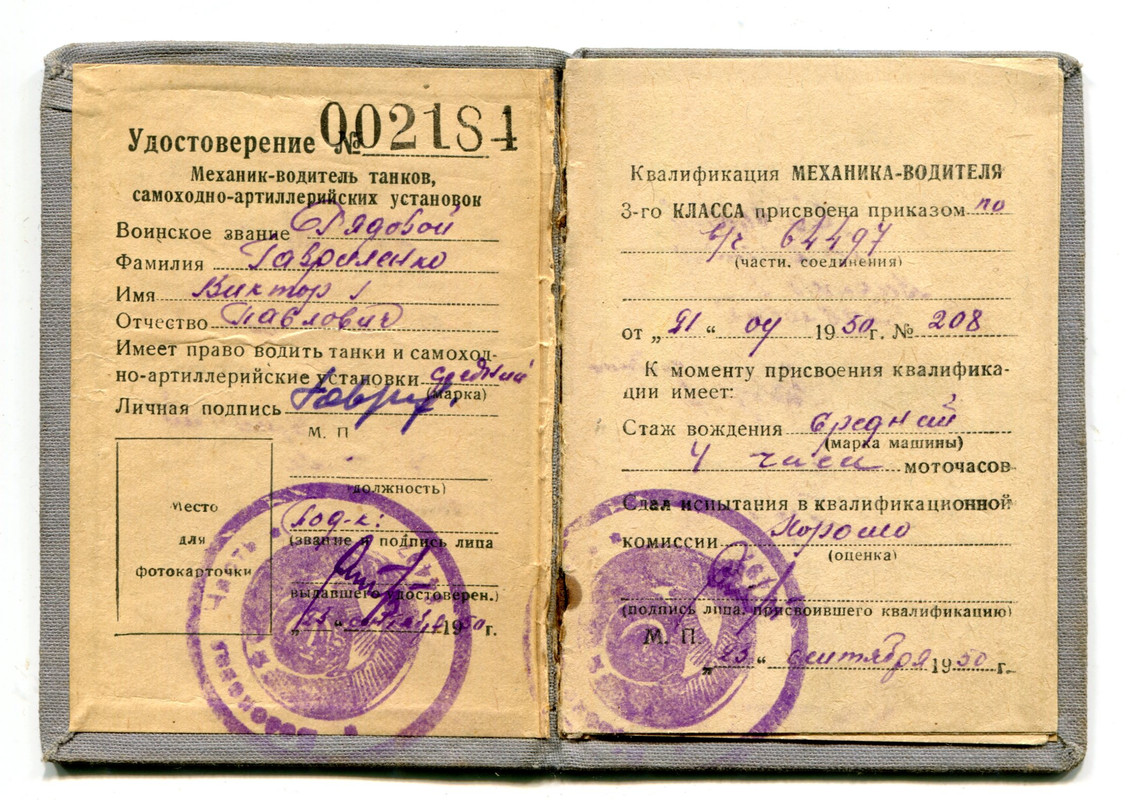 Удостоверение № 002184
Механик-водитель танков,
самоходно-артиллерийских установок
Воинское звание Рядовой
Фамилия Гавриленко
Имя Виктор
Отчество Павлович
Имеет право водить танки и самоход-
но-артиллерийские установки средний
(марка)
Личная подпись
М. П
должность)
Под-к:
(звание и подпись лица
выдавшего удостоверен.)
„23“ 1950 г.
Место
для
фотокарточки
Часть
Квалификация МЕХАНИКА-ВОДИТЕЛЯ
3-го КЛАССА присвоена приказом по
в/ч 64497
(части, соединения)
от „21“ 09 1950 г. № 208
К моменту присвоения квалифика-
ции имеет:
Стаж вождения средний
(марка машины)
4 часа моточасов
Сдал испытания в квалификационной
комиссии хорошо
(оценка)
(подпись лица, присвоившего квалификацию)
М. П.
„23“ сентября 1950 г.